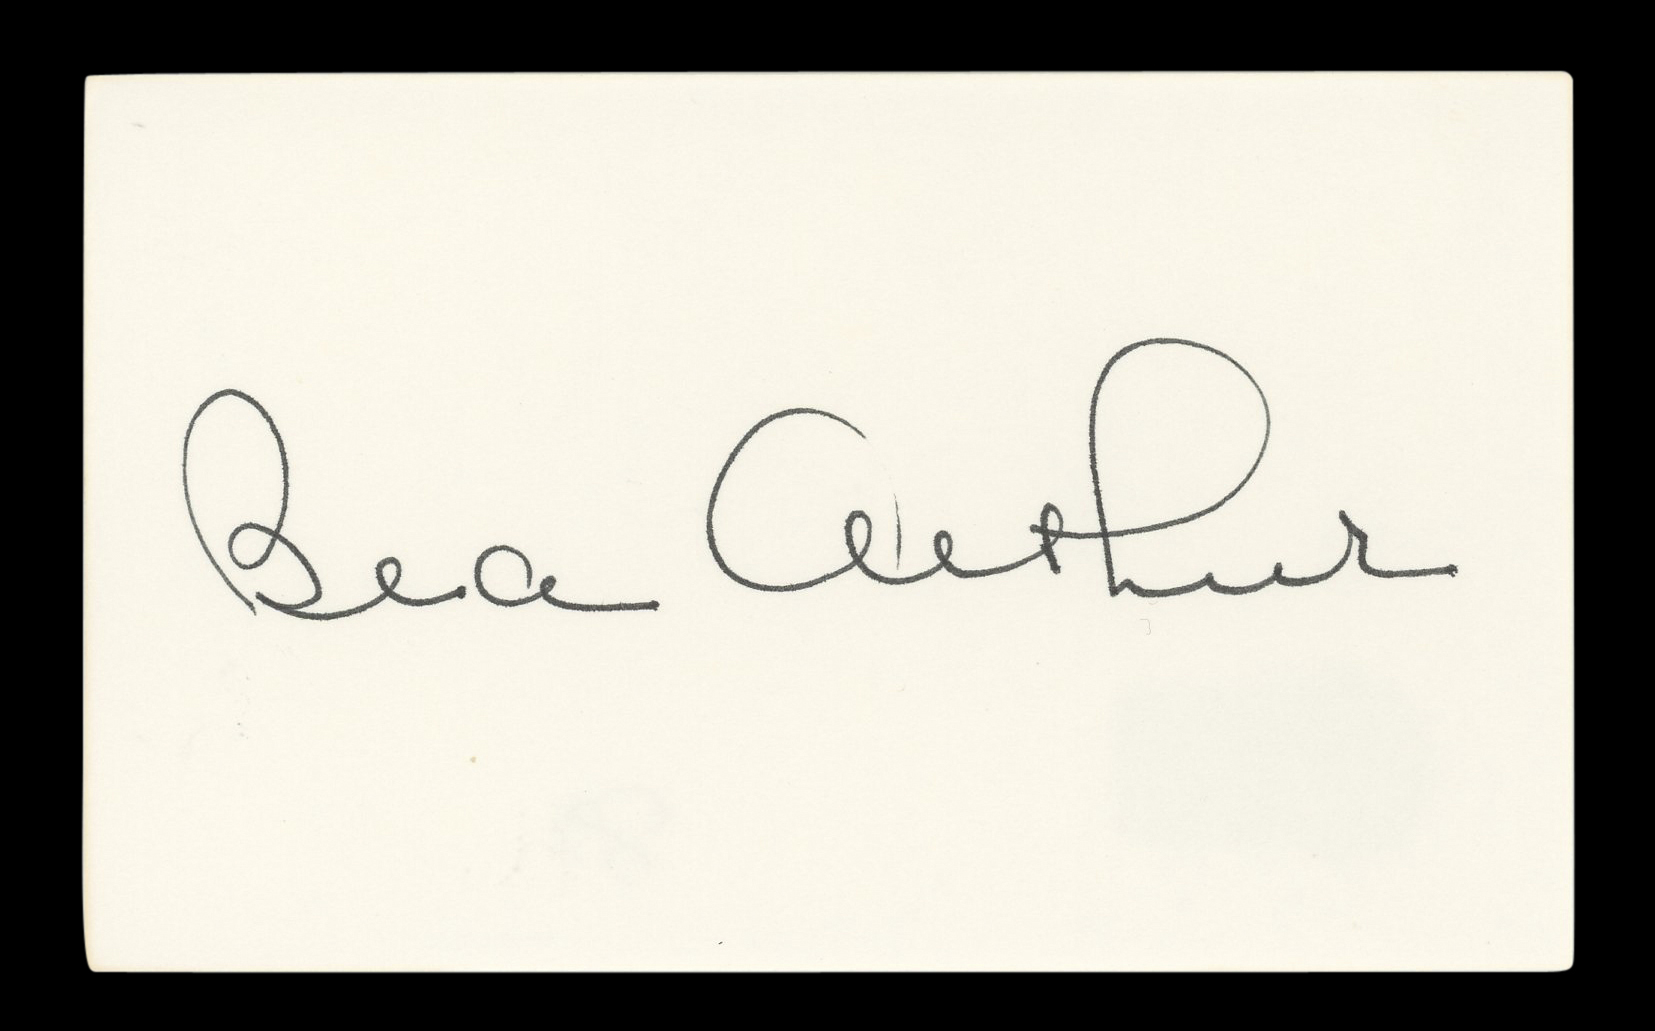 Bea Arthur